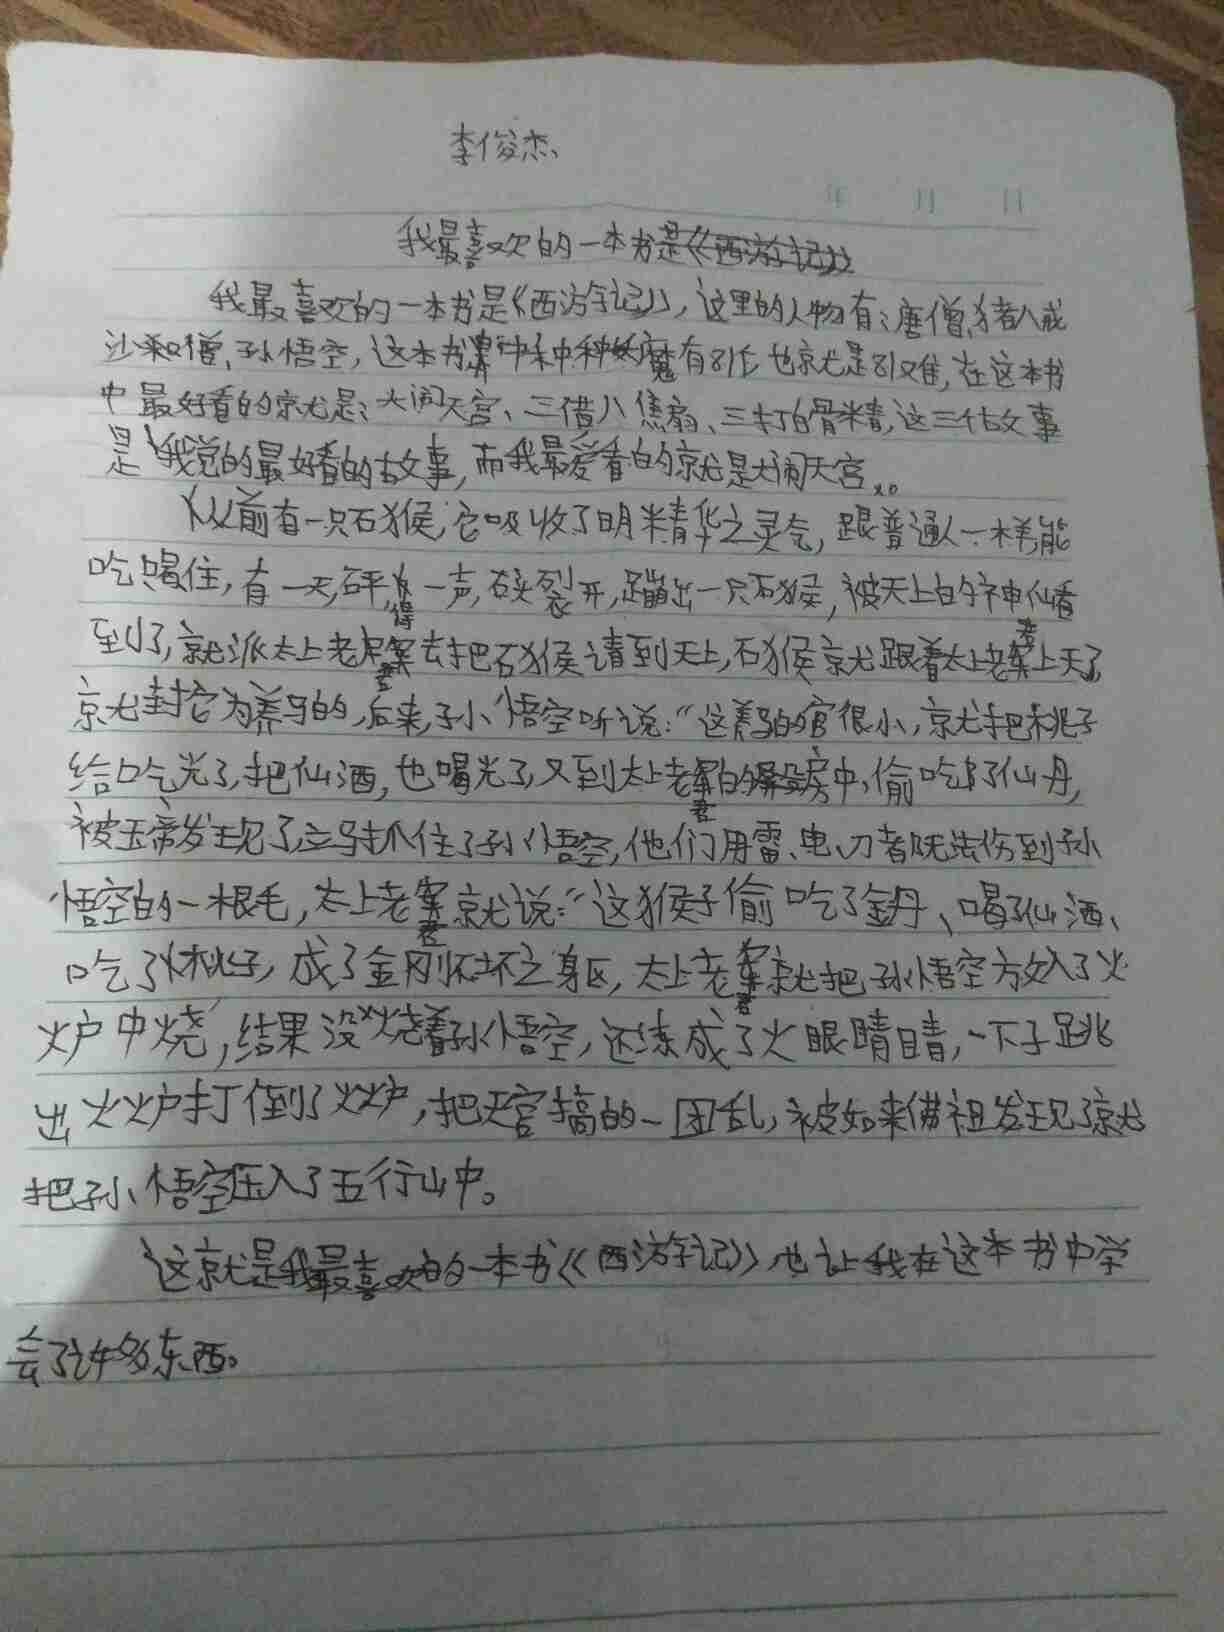 李俊杰
年 月 日
我最喜欢的一本书是《西游记》
我最喜欢的一本书是《西游记》，这里的人物有：唐僧、猪八戒
沙和僧、孙悟空，这本书 种 魔有81位也就是81难，在这本书
中最好看的就是：大闹天宫、三借八焦扇、三打白骨精，这三个故文事
是我觉的最好看的故事，而我最爱看的就是大闹天宫。
从前有一只石猴，它吸收了明精华之灵气，跟普通人一样，能
吃喝住，有一天，砰得一声，石头裂开，蹦出一只石猴，被天上的神仙看
到了，就派太上老君去把石猴请到天上，石猴就跟着太上老君上天了
就封它为养马的，后来，孙悟空听说：“这养马的官很小，就把桃子
给吃光了，把仙酒，也喝光了，又到太上老君的 房中，偷吃了仙丹，
被玉帝发现了，立马抓住了孙悟空，他们用雷、电、刀都无法伤到孙
悟空的一根毛，太上老君就说：“这猴子偷吃了金丹、喝了仙酒、
吃了桃子，成了金刚怀坏之身区，太上老君就把孙悟空放入了火
炉中烧，结果没烧着孙悟空，还练成了火眼睛睛，一下子跳
出火炉打倒了火炉，把天宫搞的一团乱，被如来佛祖发现了就
把孙悟空压入了五行山中。
这就是我最喜欢的一本书《西游记》也让我在这本书中学
会了许多东西。